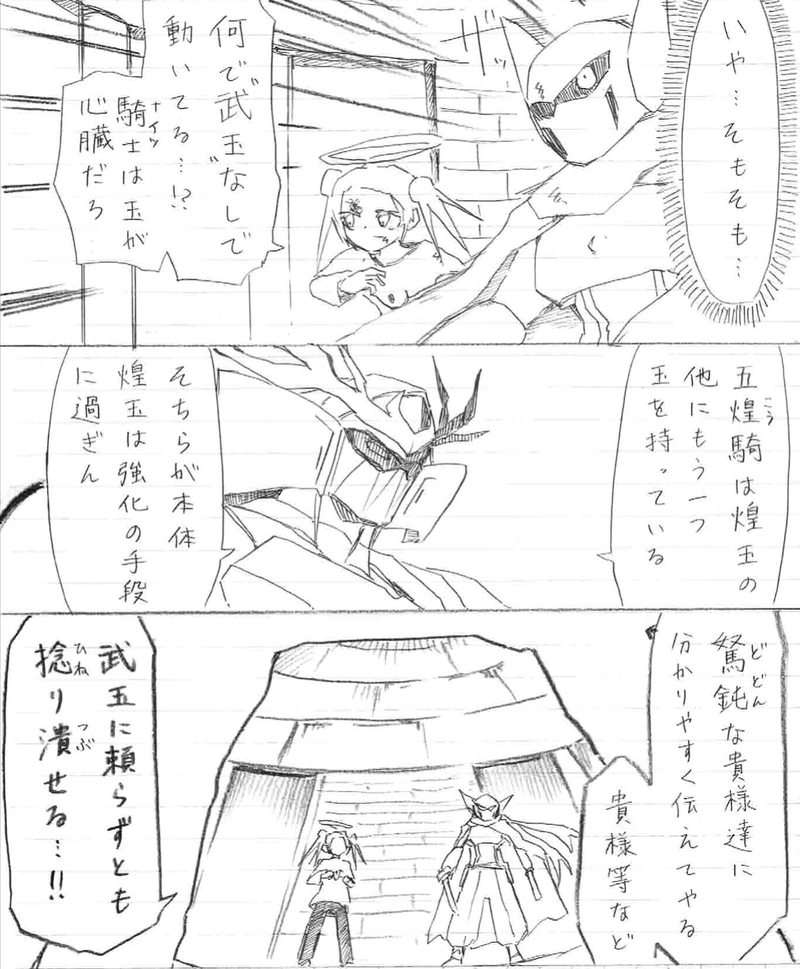 いや…そもそも…
ザッ
何で武玉なしで
動いてる…!?
騎士は玉が
ナイツ
心臓だろ
五煌騎は煌玉の
こう
他にもう一つ
玉を持っている
そちらが本体
煌玉は強化の手段
に過ぎん
駑鈍な貴様達に
どどん
分かりやすく伝えてやる
貴様等など
武玉に頼らずとも
捻り潰せる…!!
ひね
つぶ